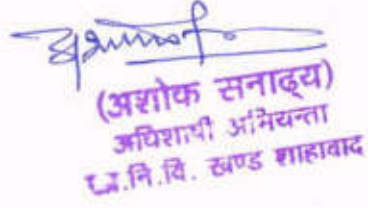 (अशोक सनाढ्य)
अधिशाषी अभियन्ता
नि.वि. खण्ड शाहावाद